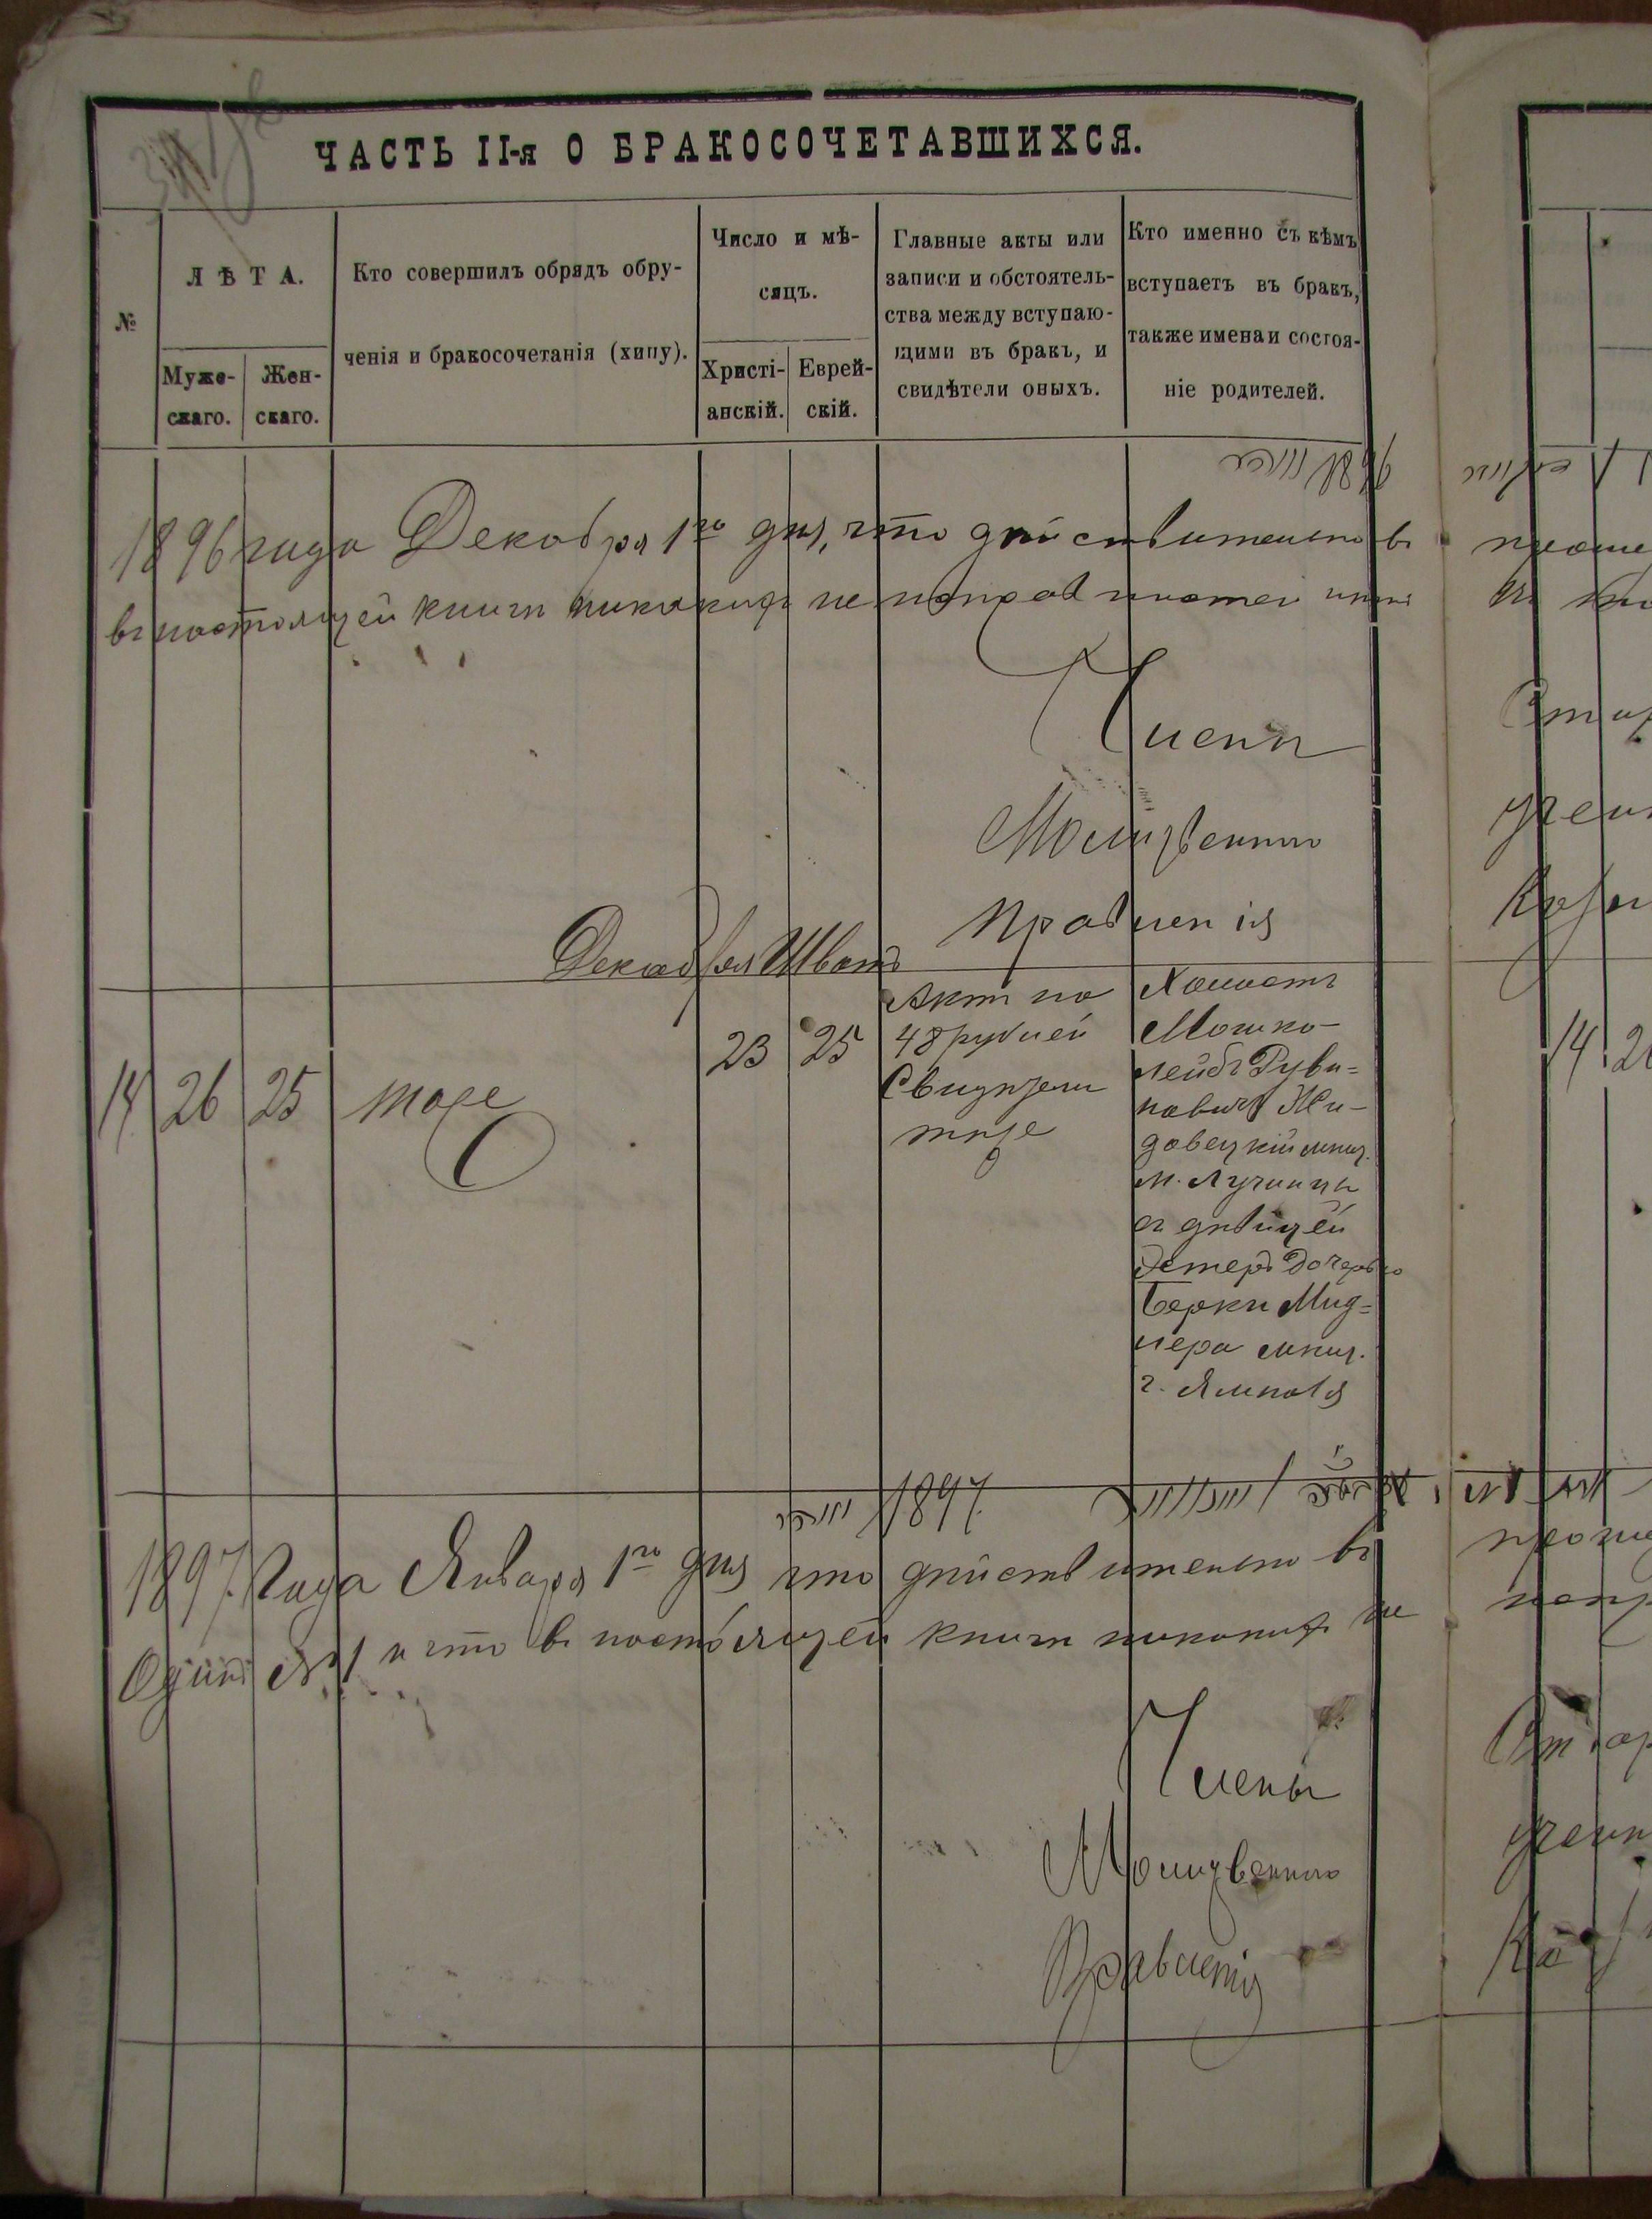 ЧАСТЬ II-я О БРАКОСОЧЕТАВШИХСЯ.
№
ЛѢТА.
Муже-
скаго.
Жен-
скаго.
Кто совершилъ обрядъ обру-
ченія и бракосочетанія (хипу).
Число и мѣ-
сяцъ.
Христі-
анскій.
Еврей-
скій.
Главные акты или
записи и обстоятель-
ства между вступаю-
щими въ бракъ, и
свидѣтели оныхъ.
Кто именно съ кѣмъ
вступаетъ въ бракъ,
также имена и состоя-
ніе родителей.
1896 года Декабря 1го дня, что дѣйствительно въ
въ настоящей книгѣ никакихъ не
Члены
Молитвеннаго
Правленія
Декабря Шватъ
14 26 25 тоже 23 25
Актъ на
48 рублей
Свидѣтели
тоже
Холостъ
Мошко-
лейбъ Руви-
новичъ Жи-
довецкій мѣщ.
м. Лучинца
съ дѣвицей
Эстеръ дочерью
Берки Мид-
лера мѣщ.
г. Ямполя
1897
1897 Года Января 1го дня что дѣйствительно въ
Одинъ №1 и что въ настоящей книгѣ никакихъ не
Члены
Молитвеннаго
Правленія
14